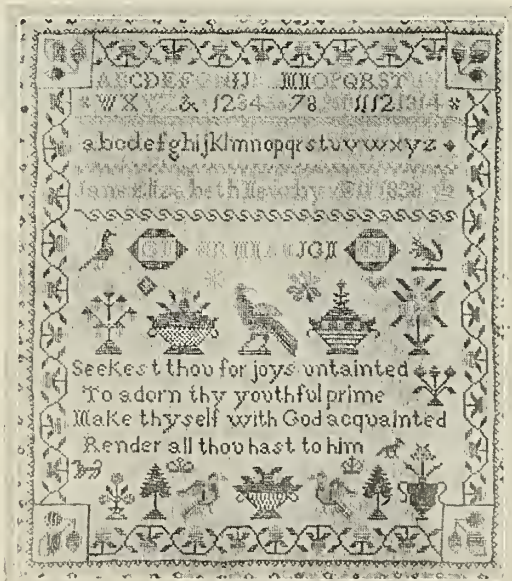 ABCDEFGHIJ MNOPQRST
WXYZ & 1234 78 11 12 13 14
abcdefghijklmnopqrstuvwxyz
Jane Elizabeth 1828
JGN
Seekest thou for joys untainted
To adorn thy youthful prime
Make thyself with God acquainted
Render all thou hast to him